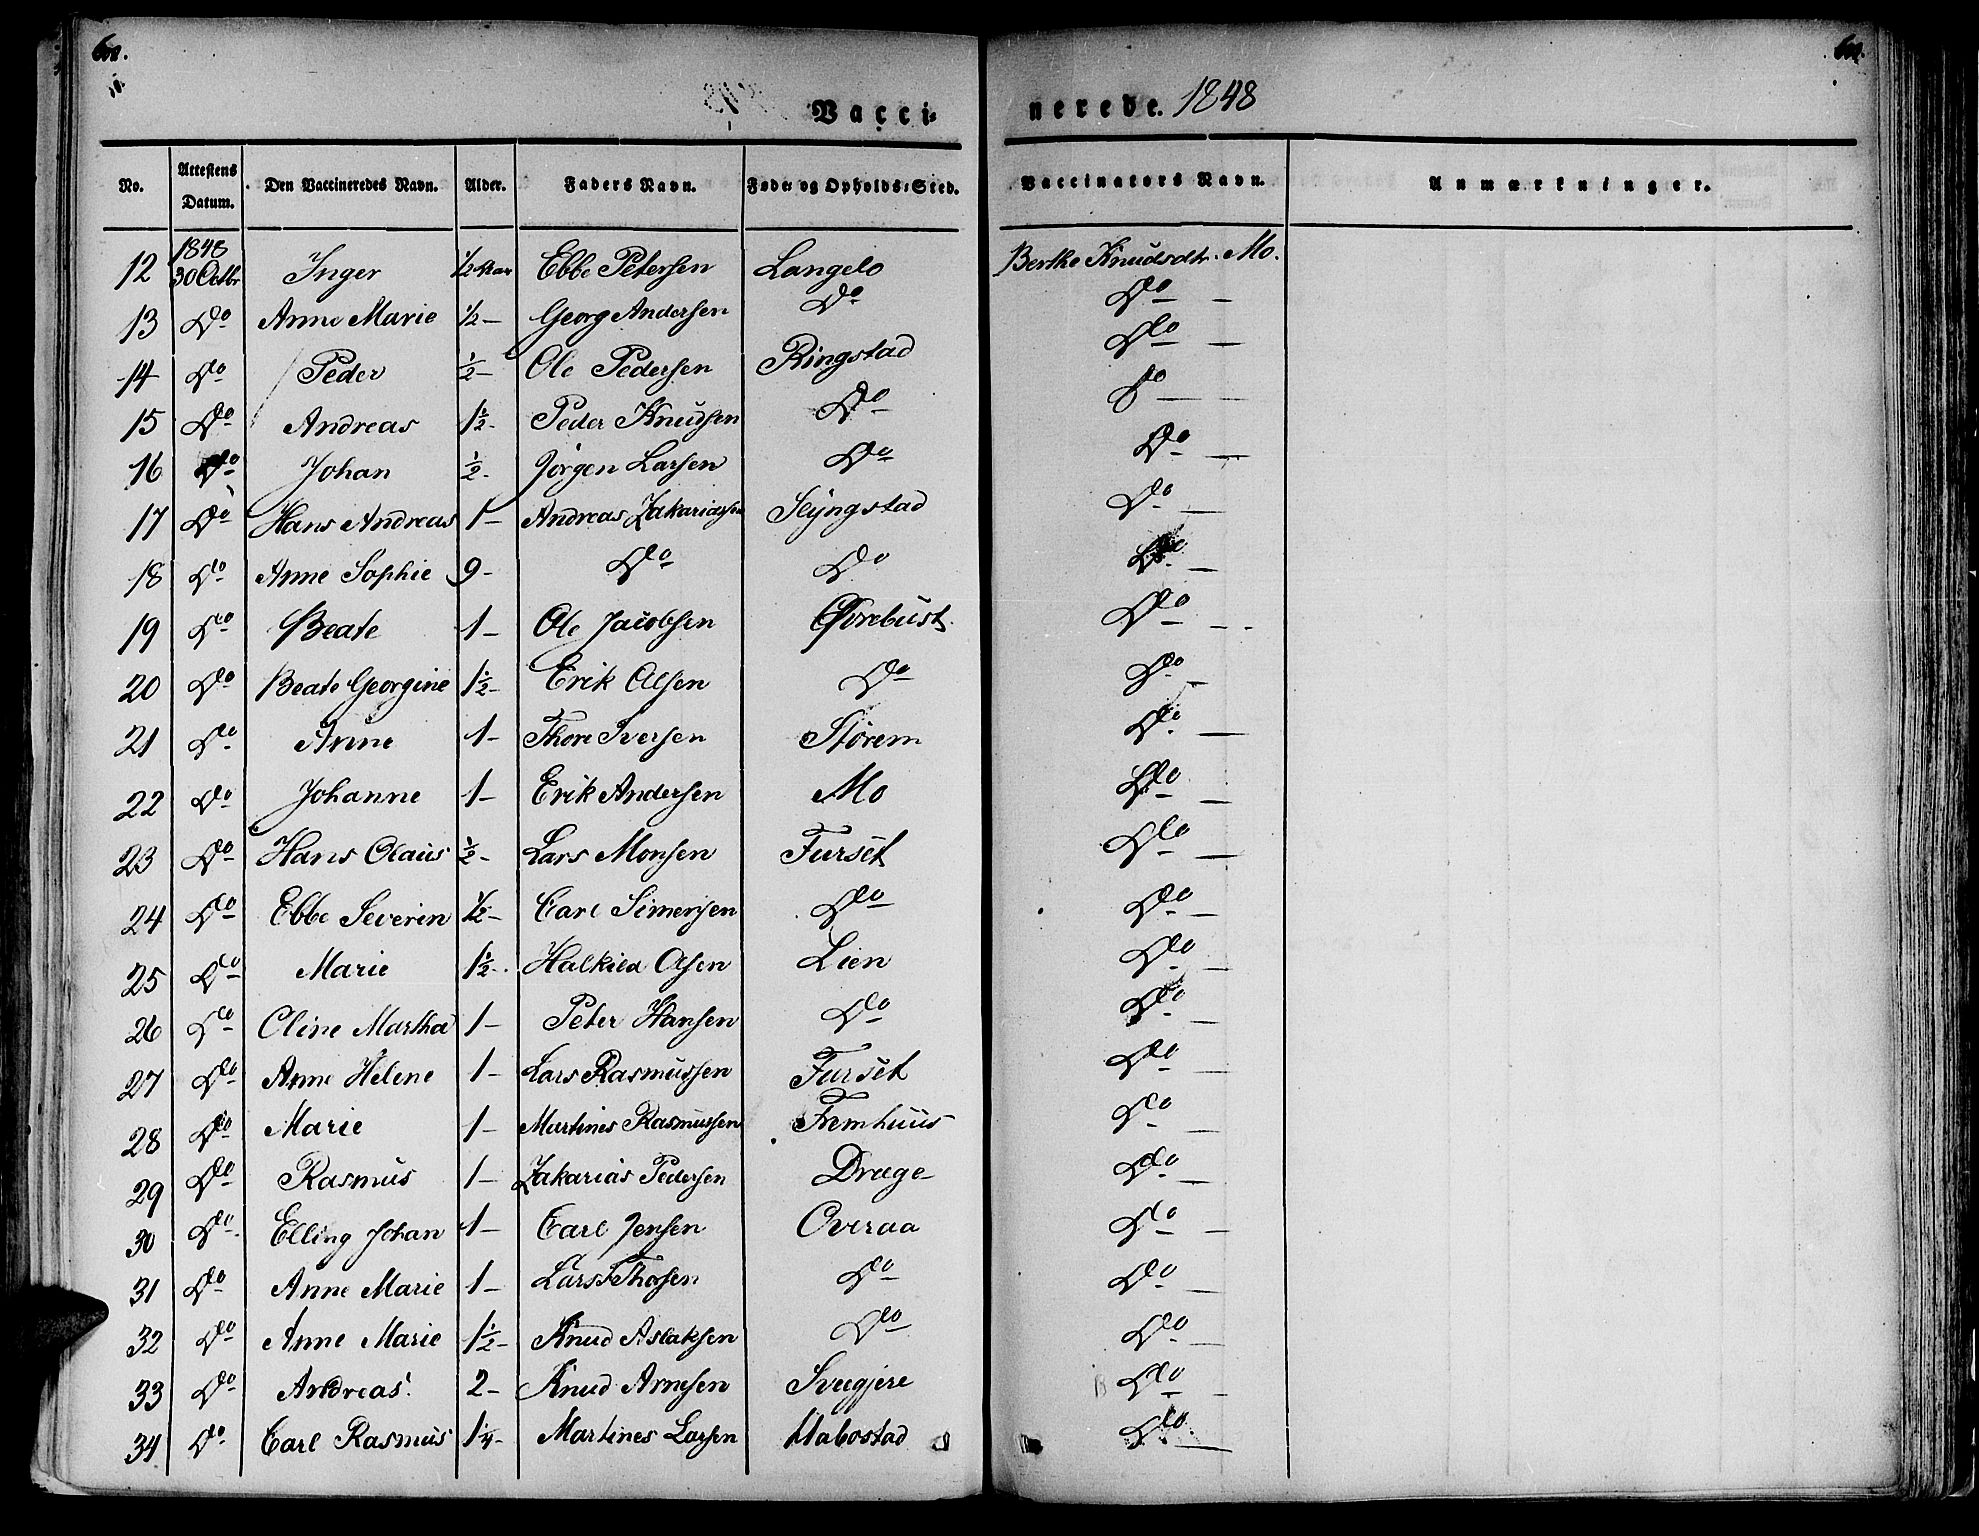 Vacci- nerede. 1848
No. Attestens Datum. Den Vaccineredes Navn. Alder. Faders Navn. Føde- og Opholds-Sted. Vaccinators Navn. Anmærkninger.
12 1848 30 Octbr Inger 1/2 Aar Ebbe Petersen Langelo Berthe Knudsdtr. Mo.
13 Do Anne Marie 1/2 – Georg Andersen Do Do –
14 Do Peder 1/2 – Ole Pedersen Ringstad Do –
15 Do Andreas 1 1/2 – Peder Knudsen Do Do –
16 Do Johan 1/2 – Jørgen Larsen Do Do –
17 Do Hans Andreas 1 – Andreas Zakariassen Slyngstad Do –
18 Do Anne Sophie 9 – Do Do Do –
19 Do Beate 1 – Ole Jacobsen Øvrebust Do –
20 Do Beate Georgine 1 1/2 – Erik Olsen Do Do –
21 Do Anne 1 – Thore Iversen Størem Do –
22 Do Johanne 1 – Erik Andersen Mo Do –
23 Do Hans Olaus 1/2 – Lars Monsen Furset Do –
24 Do Ebbe Severin 1/2 – Carl Simensen Do Do –
25 Do Marie 1 1/2 – Halkild Olsen Lien Do –
26 Do Oline Martha 1 – Peter Hansen Do Do –
27 Do Anne Helene 1 – Lars Rasmussen Furset Do –
28 Do Marie 1 – Martines Rasmussen Fremhuus Do –
29 Do Rasmus 1 – Zakarias Pedersen Drage Do –
30 Do Elling Johan 1 – Carl Jensen Overaa Do –
31 Do Anne Marie 1 – Lars Do Do –
32 Do Anne Marie 1 1/2 – Knud Aslaksen Do Do –
33 Do Andreas 2 – Knud Arnesen Svegjere Do –
34 Do Carl Rasmus 1 1/4 – Martines Larsen Habostad Do –